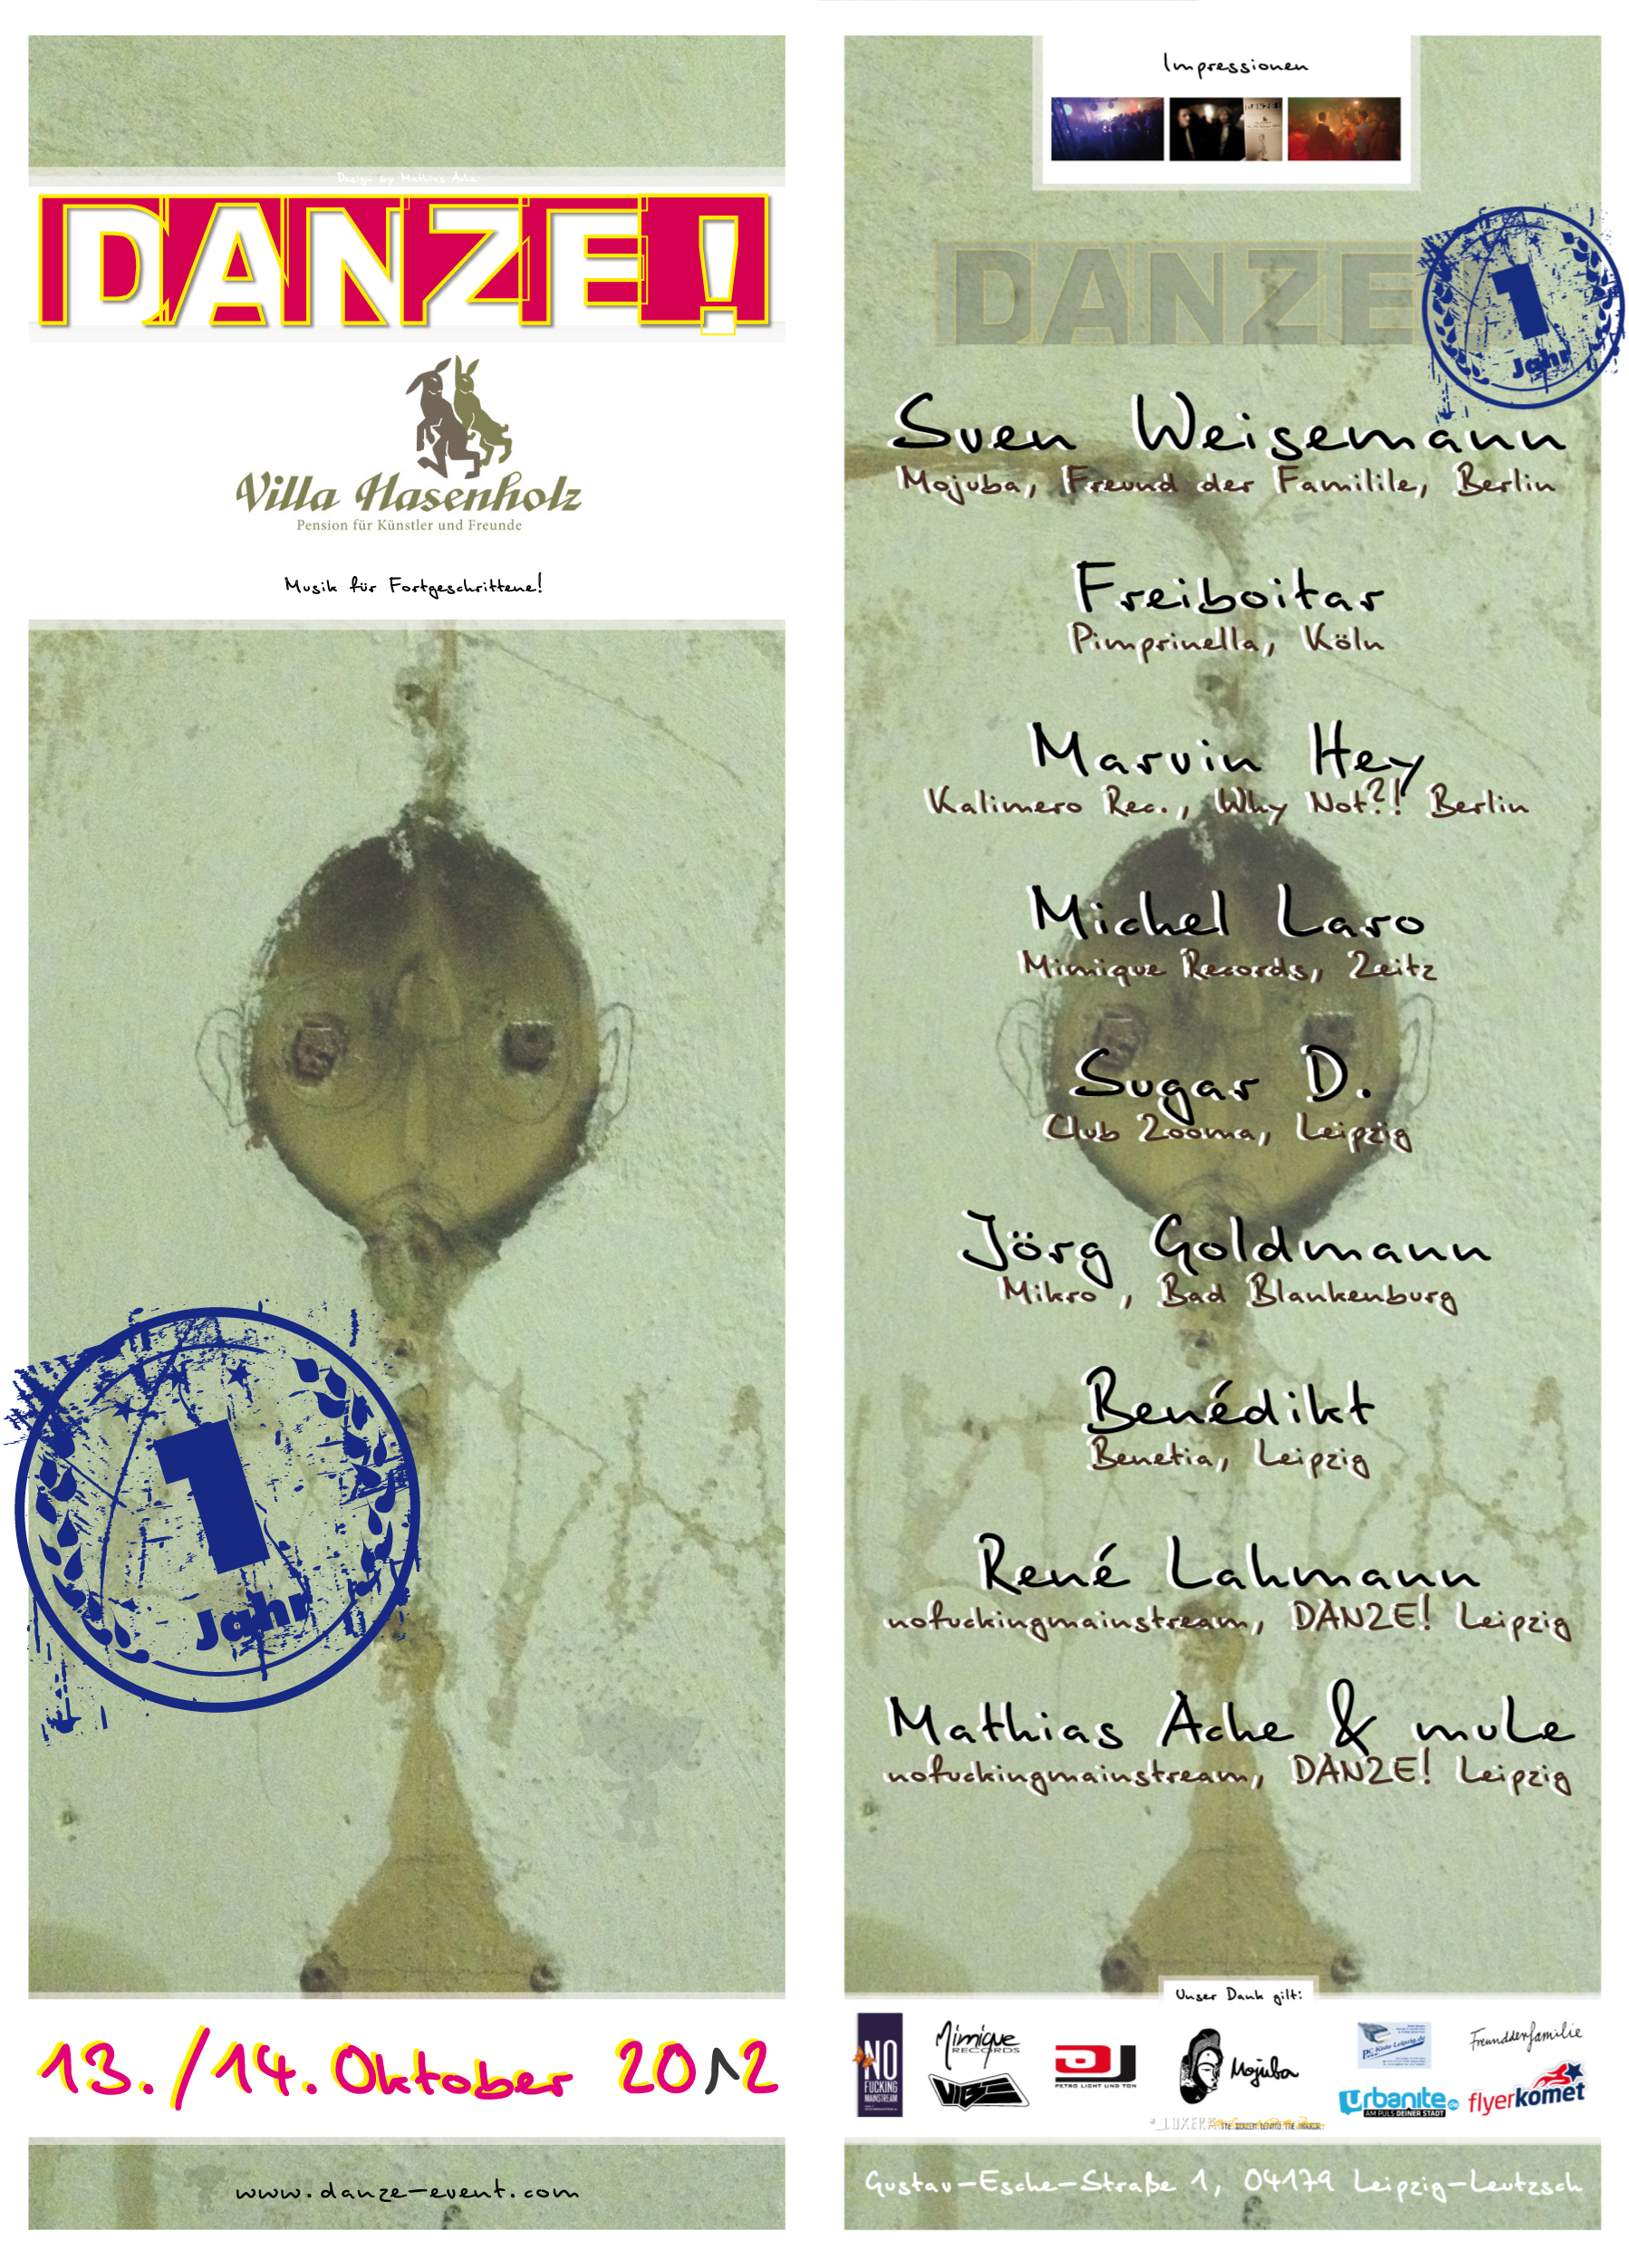 Design by Mathias Ache
DANZE!
Villa Hasenholz
Pension für Künstler und Freunde
Musik für Fortgeschrittene!
1
Jahr
13./14. Oktober 2012
www.danze-event.com
Impressionen
DANZE
1
Jahr
Sven Weisemann
Mojuba, Freund der Familile, Berlin
Freiboitar
Pimprinella, Köln
Marvin Hey
Kalimero Rec., Why Not?! Berlin
Michel Laro
Mimique Records, Zeitz
Sugar D.
Club Zooma, Leipzig
Jörg Goldmann
Mikro , Bad Blankenburg
Benédikt
Benetia, Leipzig
René Lahmann
nofuckingmainstream, DANZE! Leipzig
Mathias Ache & mule
nofuckingmainstream, DANZE! Leipzig
Unser Dank gilt:
NO
FUCKING
MAINSTREAM
Mimique
RECORDS
VIBE
PETRO LICHT UND TON
Mojuba
Freundderfamilie
urbanite.de
AM PULS DEINER STADT
flyerkomet
Gustav-Esche-Straße 1, 04179 Leipzig-Leutzsch